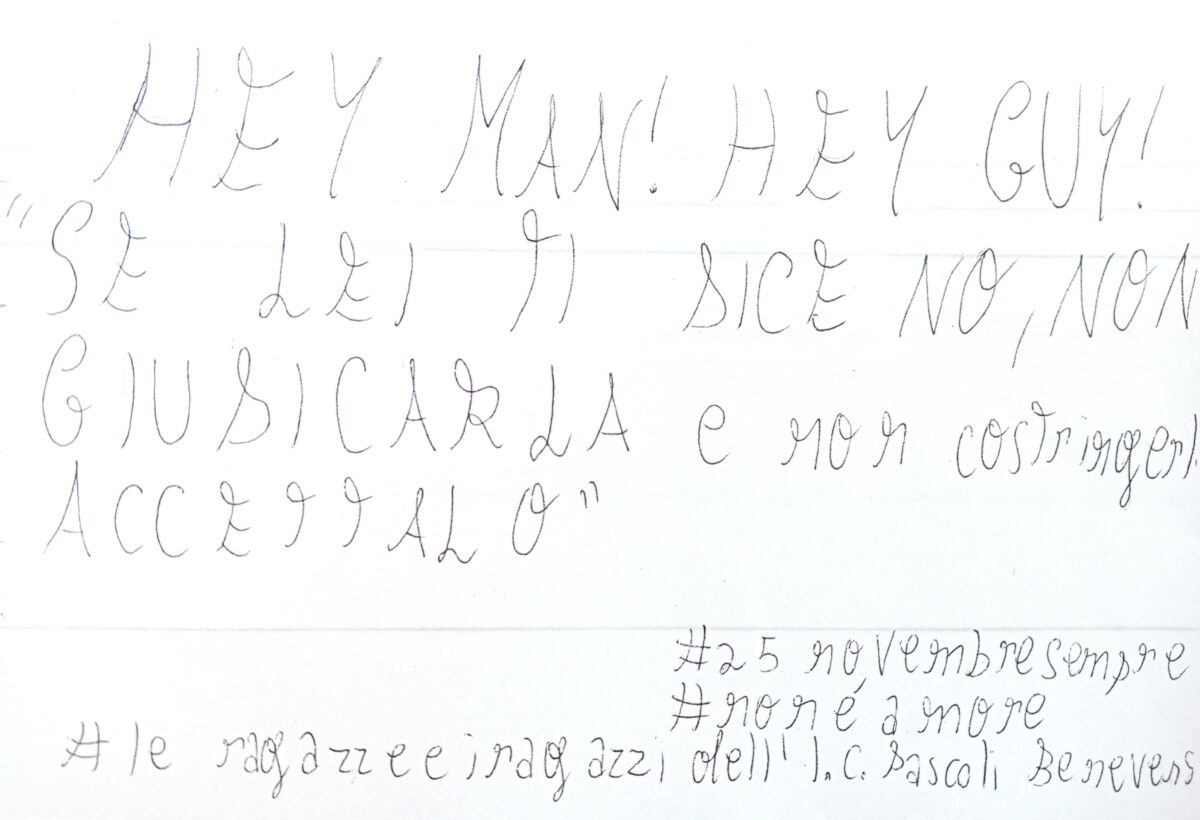 HEY MAN! HEY GUY!
"SE LEI TI DICE NO, NON
GIUDICARLA e non costringerl
ACCETTALO"
#25 novembresempre
#non é amore
#le ragazze e i ragazzi dell' I.C. Pascoli Beneven